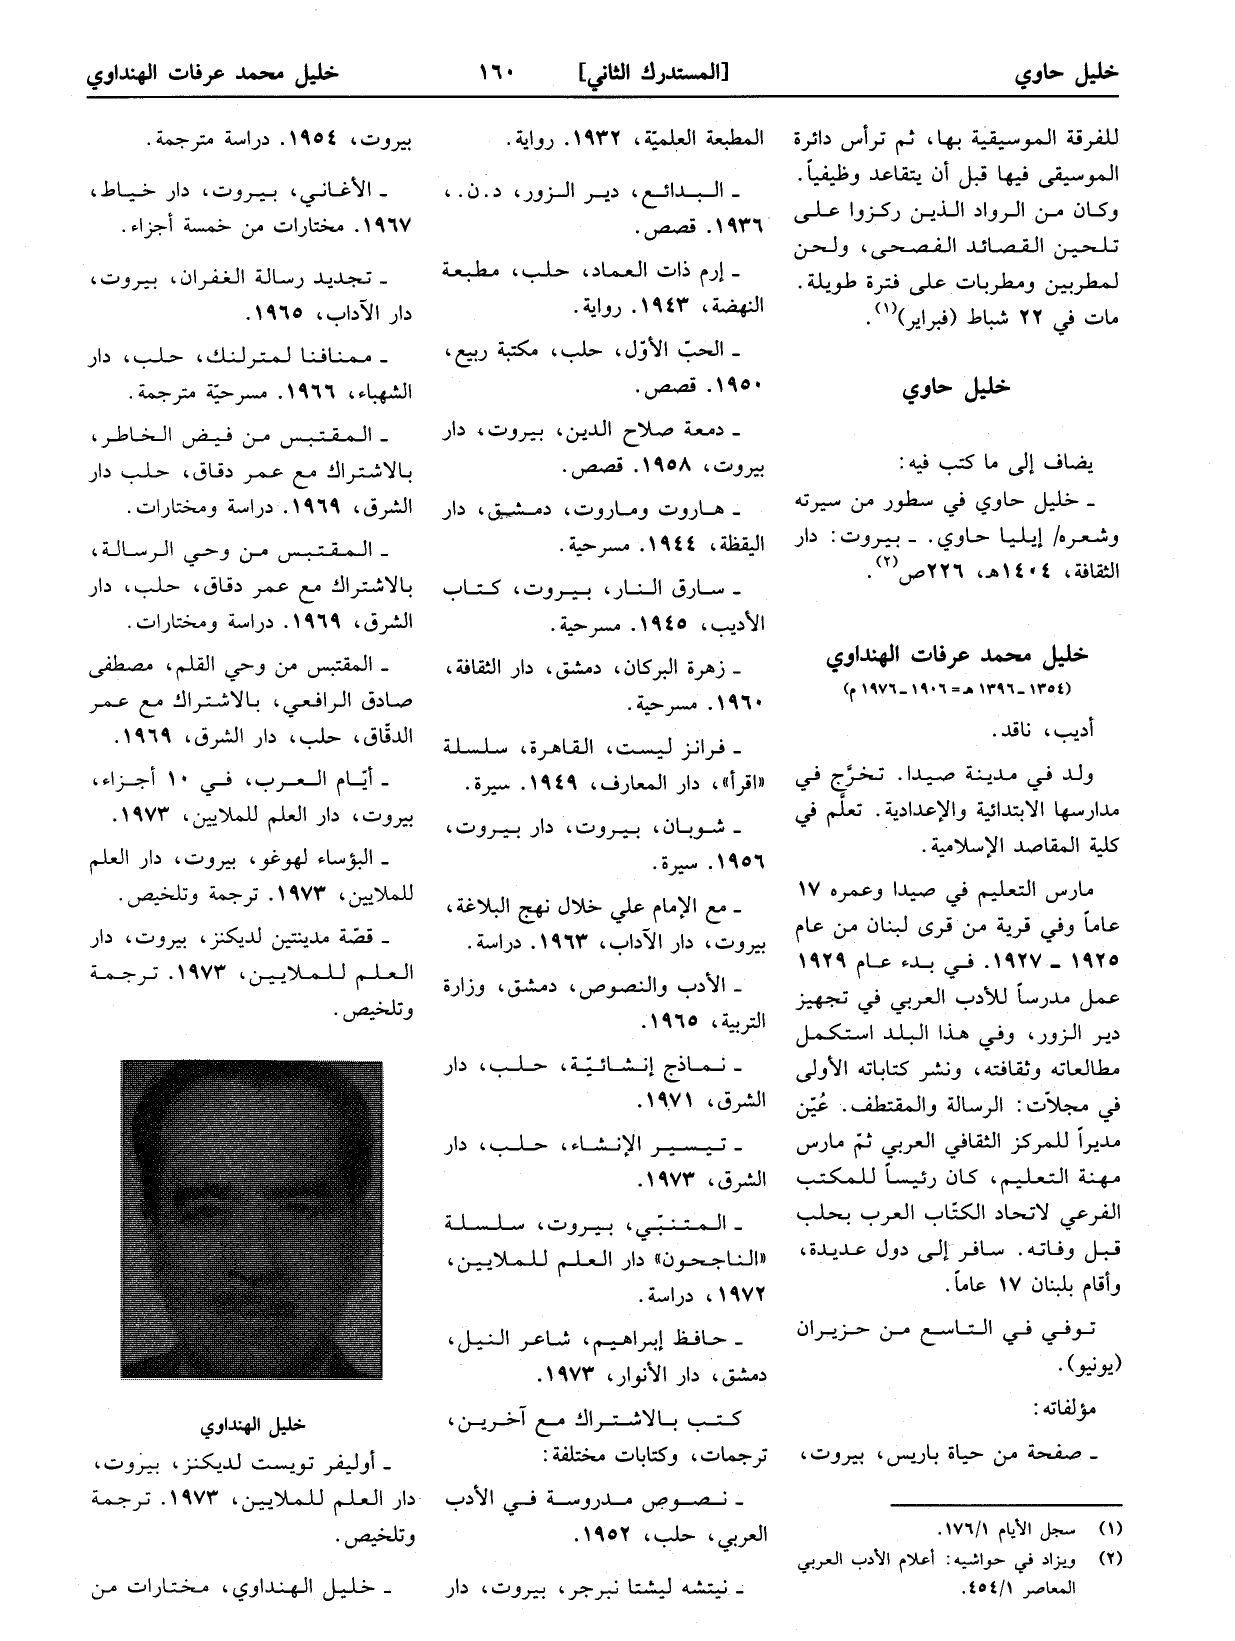 خليل حاوي
[المستدرك الثاني]
١٦٠
خليل محمد عرفات الهنداوي
للفرقة الموسيقية بها، ثم ترأس دائرة
الموسيقى فيها قبل أن يتقاعد وظيفياً.
وكان من الرواد الذين ركزوا على
تلحين القصائد الفصحى، ولحن
لمطربين ومطربات على فترة طويلة.
مات في ٢٢ شباط (فبراير)(١).
خليل حاوي
يضاف إلى ما كتب فيه:
ـ خليل حاوي في سطور من سيرته
وشعره/ إيليا حاوي. ـ بيروت: دار
الثقافة، ١٤٠٤هـ، ٢٢٦ص(٢).
خليل محمد عرفات الهنداوي
(١٣٥٤ـ١٣٩٦ هـ = ١٩٠٦ـ١٩٧٦ م)
أديب، ناقد.
ولد في مدينة صيدا. تخرَّج في
مدارسها الابتدائية والإعدادية. تعلَّم في
كلية المقاصد الإسلامية.
مارس التعليم في صيدا وعمره ١٧
عاماً وفي قرية من قرى لبنان من عام
١٩٢٥ ـ ١٩٢٧. في بدء عام ١٩٢٩
عمل مدرساً للأدب العربي في تجهيز
دير الزور، وفي هذا البلد استكمل
مطالعاته وثقافته، ونشر كتاباته الأولى
في مجلاّت: الرسالة والمقتطف. عُيّن
مديراً للمركز الثقافي العربي ثمّ مارس
مهنة التعليم، كان رئيساً للمكتب
الفرعي لاتحاد الكتّاب العرب بحلب
قبل وفاته. سافر إلى دول عديدة،
وأقام بلبنان ١٧ عاماً.
توفي في التاسع من حزيران
(يونيو).
مؤلفاته:
ـ صفحة من حياة باريس، بيروت،
(١) سجل الأيام ١/١٧٦.
(٢) ويزاد في حواشيه: أعلام الأدب العربي
المعاصر ١/٤٥٤.
المطبعة العلميّة، ١٩٣٢. رواية.
ـ البدائع، دير الزور، د.ن.،
١٩٣٦. قصص.
ـ إرم ذات العماد، حلب، مطبعة
النهضة، ١٩٤٣. رواية.
ـ الحبّ الأوّل، حلب، مكتبة ربيع،
١٩٥٠. قصص.
ـ دمعة صلاح الدين، بيروت، دار
بيروت، ١٩٥٨. قصص.
ـ هاروت وماروت، دمشق، دار
اليقظة، ١٩٤٤. مسرحية.
ـ سارق النار، بيروت، كتاب
الأديب، ١٩٤٥. مسرحية.
ـ زهرة البركان، دمشق، دار الثقافة،
١٩٦٠. مسرحية.
ـ فرانز ليست، القاهرة، سلسلة
«اقرأ»، دار المعارف، ١٩٤٩. سيرة.
ـ شوبان، بيروت، دار بيروت،
١٩٥٦. سيرة.
ـ مع الإمام علي خلال نهج البلاغة،
بيروت، دار الآداب، ١٩٦٣. دراسة.
ـ الأدب والنصوص، دمشق، وزارة
التربية، ١٩٦٥.
ـ نماذج إنشائيّة، حلب، دار
الشرق، ١٩٧١.
ـ تيسير الإنشاء، حلب، دار
الشرق، ١٩٧٣.
ـ المتنبّي، بيروت، سلسلة
«الناجحون» دار العلم للملايين،
١٩٧٢، دراسة.
ـ حافظ إبراهيم، شاعر النيل،
دمشق، دار الأنوار، ١٩٧٣.
كتب بالاشتراك مع آخرين،
ترجمات، وكتابات مختلفة:
ـ نصوص مدروسة في الأدب
العربي، حلب، ١٩٥٢.
ـ نيتشه ليشتا نبرجر، بيروت، دار
بيروت، ١٩٥٤. دراسة مترجمة.
ـ الأغاني، بيروت، دار خياط،
١٩٦٧. مختارات من خمسة أجزاء.
ـ تجديد رسالة الغفران، بيروت،
دار الآداب، ١٩٦٥.
ـ ممنافنا لمترلنك، حلب، دار
الشهباء، ١٩٦٦. مسرحيّة مترجمة.
ـ المقتبس من فيض الخاطر،
بالاشتراك مع عمر دقاق، حلب دار
الشرق، ١٩٦٩. دراسة ومختارات.
ـ المقتبس من وحي الرسالة،
بالاشتراك مع عمر دقاق، حلب، دار
الشرق، ١٩٦٩. دراسة ومختارات.
ـ المقتبس من وحي القلم، مصطفى
صادق الرافعي، بالاشتراك مع عمر
الدقّاق، حلب، دار الشرق، ١٩٦٩.
ـ أيّام العرب، في ١٠ أجزاء،
بيروت، دار العلم للملايين، ١٩٧٣.
ـ البؤساء لهوغو، بيروت، دار العلم
للملايين، ١٩٧٣. ترجمة وتلخيص.
ـ قصّة مدينتين لديكنز، بيروت، دار
العلم للملايين، ١٩٧٣. ترجمة
وتلخيص.
خليل الهنداوي
ـ أوليفر تويست لديكنز، بيروت،
دار العلم للملايين، ١٩٧٣. ترجمة
وتلخيص.
ـ خليل الهنداوي، مختارات من